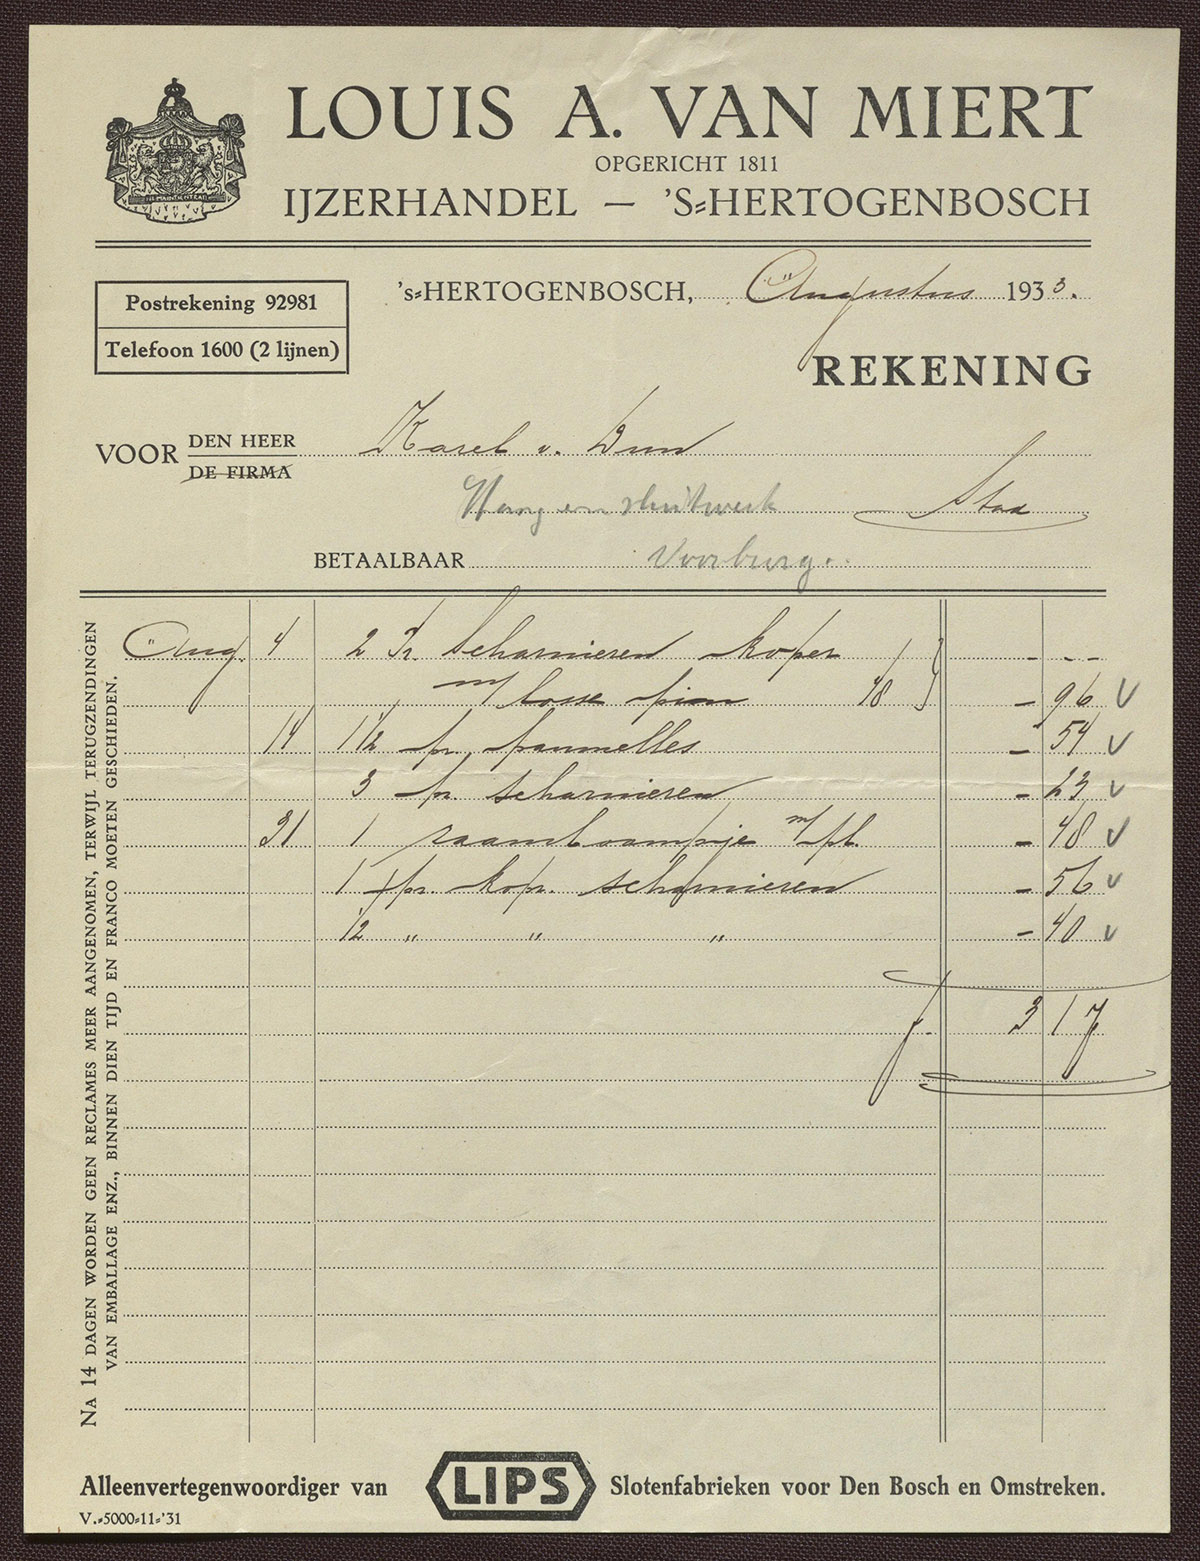 LOUIS A. VAN MIERT
OPGERICHT 1811
IJZERHANDEL — 'S-HERTOGENBOSCH
JE MAINTIENDRAI
Postrekening 92981
Telefoon 1600 (2 lijnen)
's-HERTOGENBOSCH, Augustus 1933.
REKENING
VOOR DEN HEER
DE FIRMA
Karel v. Dun
Hang en sluitwerk Stad
BETAALBAAR Voorburg.
Aug. 4 2 Pr. Scharnieren koper - - -
m/ losse pin 48 - 96 V
14 1 1/2 pr. paumelles - 54 V
3 pr. scharnieren - 23 V
31 1 raamboompje m/pl. - 48 V
1 pr. kop. scharnieren - 56 V
1/2 " " " - 40 V
f. 3 17
NA 14 DAGEN WORDEN GEEN RECLAMES MEER AANGENOMEN, TERWIJL TERUGZENDINGEN
VAN EMBALLAGE ENZ., BINNEN DIEN TIJD EN FRANCO MOETEN GESCHIEDEN.
Alleenvertegenwoordiger van LIPS Slotenfabrieken voor Den Bosch en Omstreken.
V.-5000-11-'31